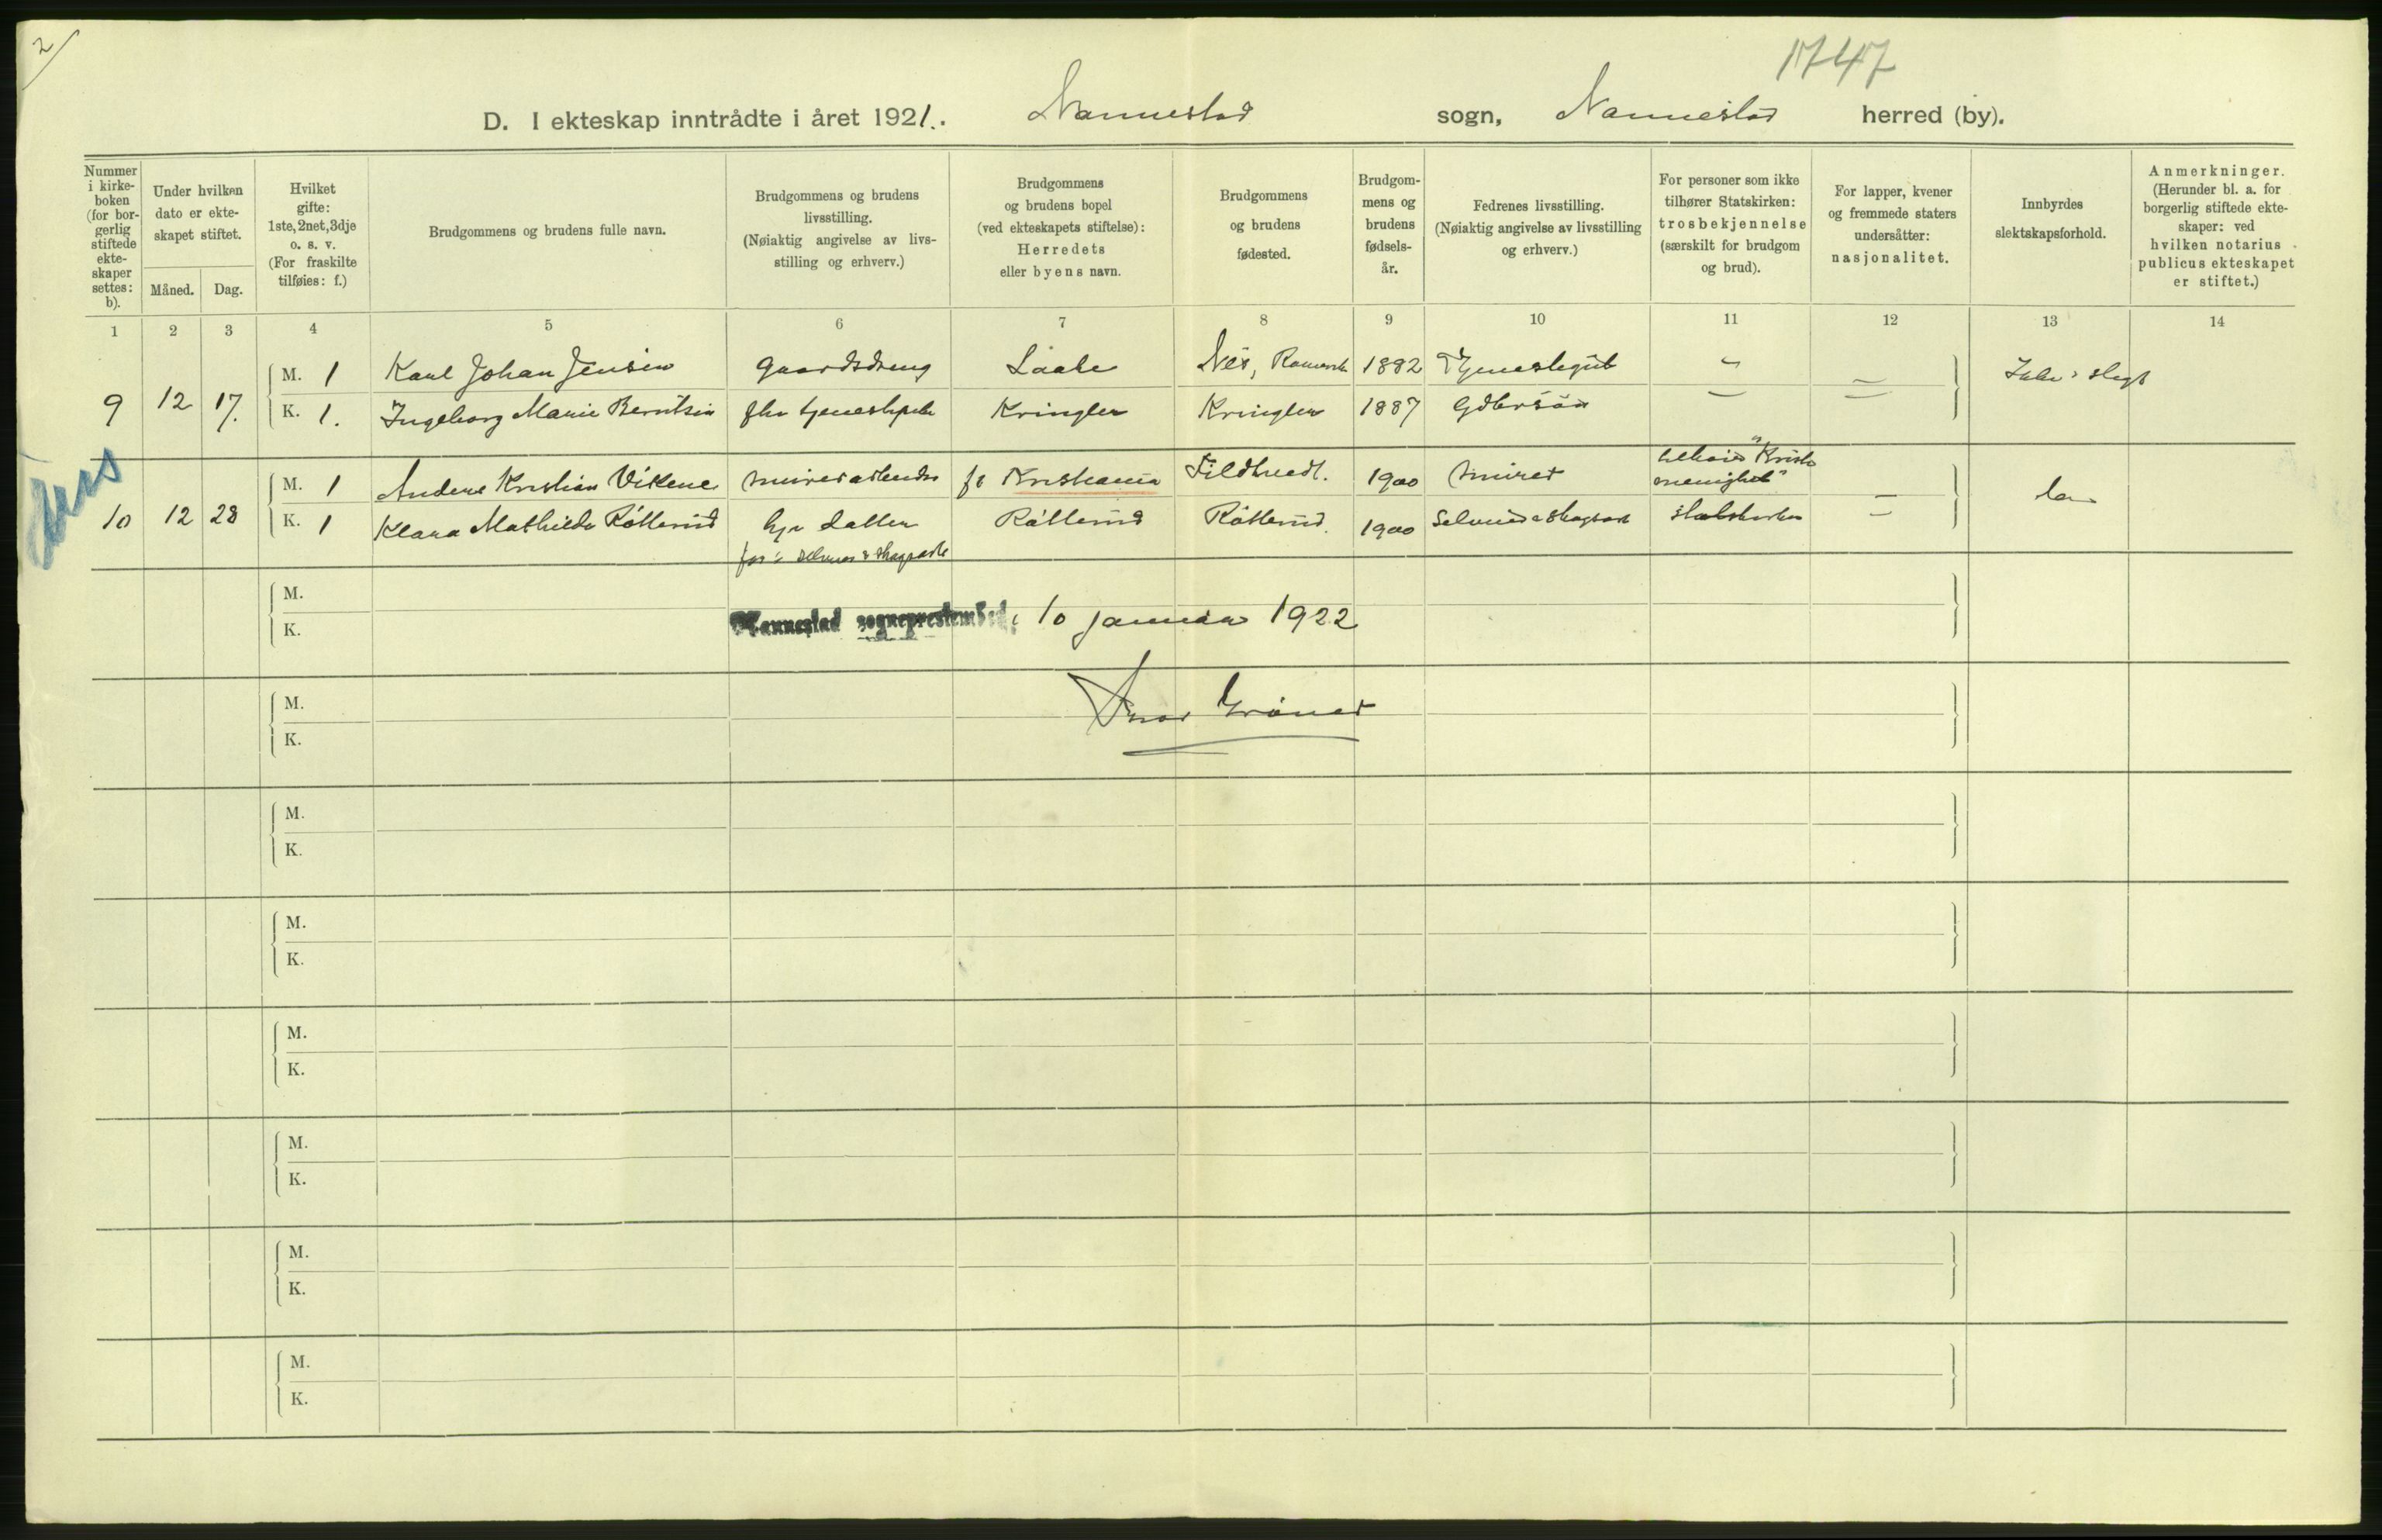 2/
1747
D. I ekteskap inntrådte i året 1921. Nannestad sogn, Nannestad herred (by).
Nummer i kirke- boken (for bor- gerlig stiftede ekte- skaper settes: b).
Under hvilken dato er ekte- skapet stiftet.
Måned. Dag.
Hvilket gifte: 1ste, 2net, 3dje o. s. v. (For fraskilte tilføies: f.)
Brudgommens og brudens fulle navn.
Brudgommens og brudens livsstilling. (Nøiaktig angivelse av livs- stilling og erhverv.)
Brudgommens og brudens bopel (ved ekteskapets stiftelse): Herredets eller byens navn.
Brudgommens og brudens fødested.
Brudgom- mens og brudens fødsels- år.
Fedrenes livsstilling. (Nøiaktig angivelse av livsstilling og erhverv.)
For personer som ikke tilhører Statskirken: trosbekjennelse (særskilt for brudgom og brud).
For lapper, kvener og fremmede staters undersåtter: nasjonalitet.
Innbyrdes slektskapsforhold.
Anmerkninger. (Herunder bl. a. for borgerlig stiftede ekte- skaper: ved hvilken notarius publicus ekteskapet er stiftet.)
1 2 3 4 5 6 7 8 9 10 11 12 13 14
9 12 17.
M. 1 Karl Johan Jensen Gaardsdreng Laake Nes, 1882 Tjenestegut
K. 1. Ingeborg Marie Berntsen Kringler Kringler 1887
Ikke i slegt
10 12 28
M. 1 Anders Kristian Vikene murerarbeider Kristiania 1900 murer menighet"
K. 1 Klara Mathilde Røtterud hj. datter Røtterud Røtterud 1900 Selveier & skogsarb statskirken
far: selveier & skogsarb
M.
K.
Nannestad sogneprestembed, 10 januar 1922
M.
K.
M.
K.
M.
K.
M.
K.
M.
K.
M.
K.
M.
K.